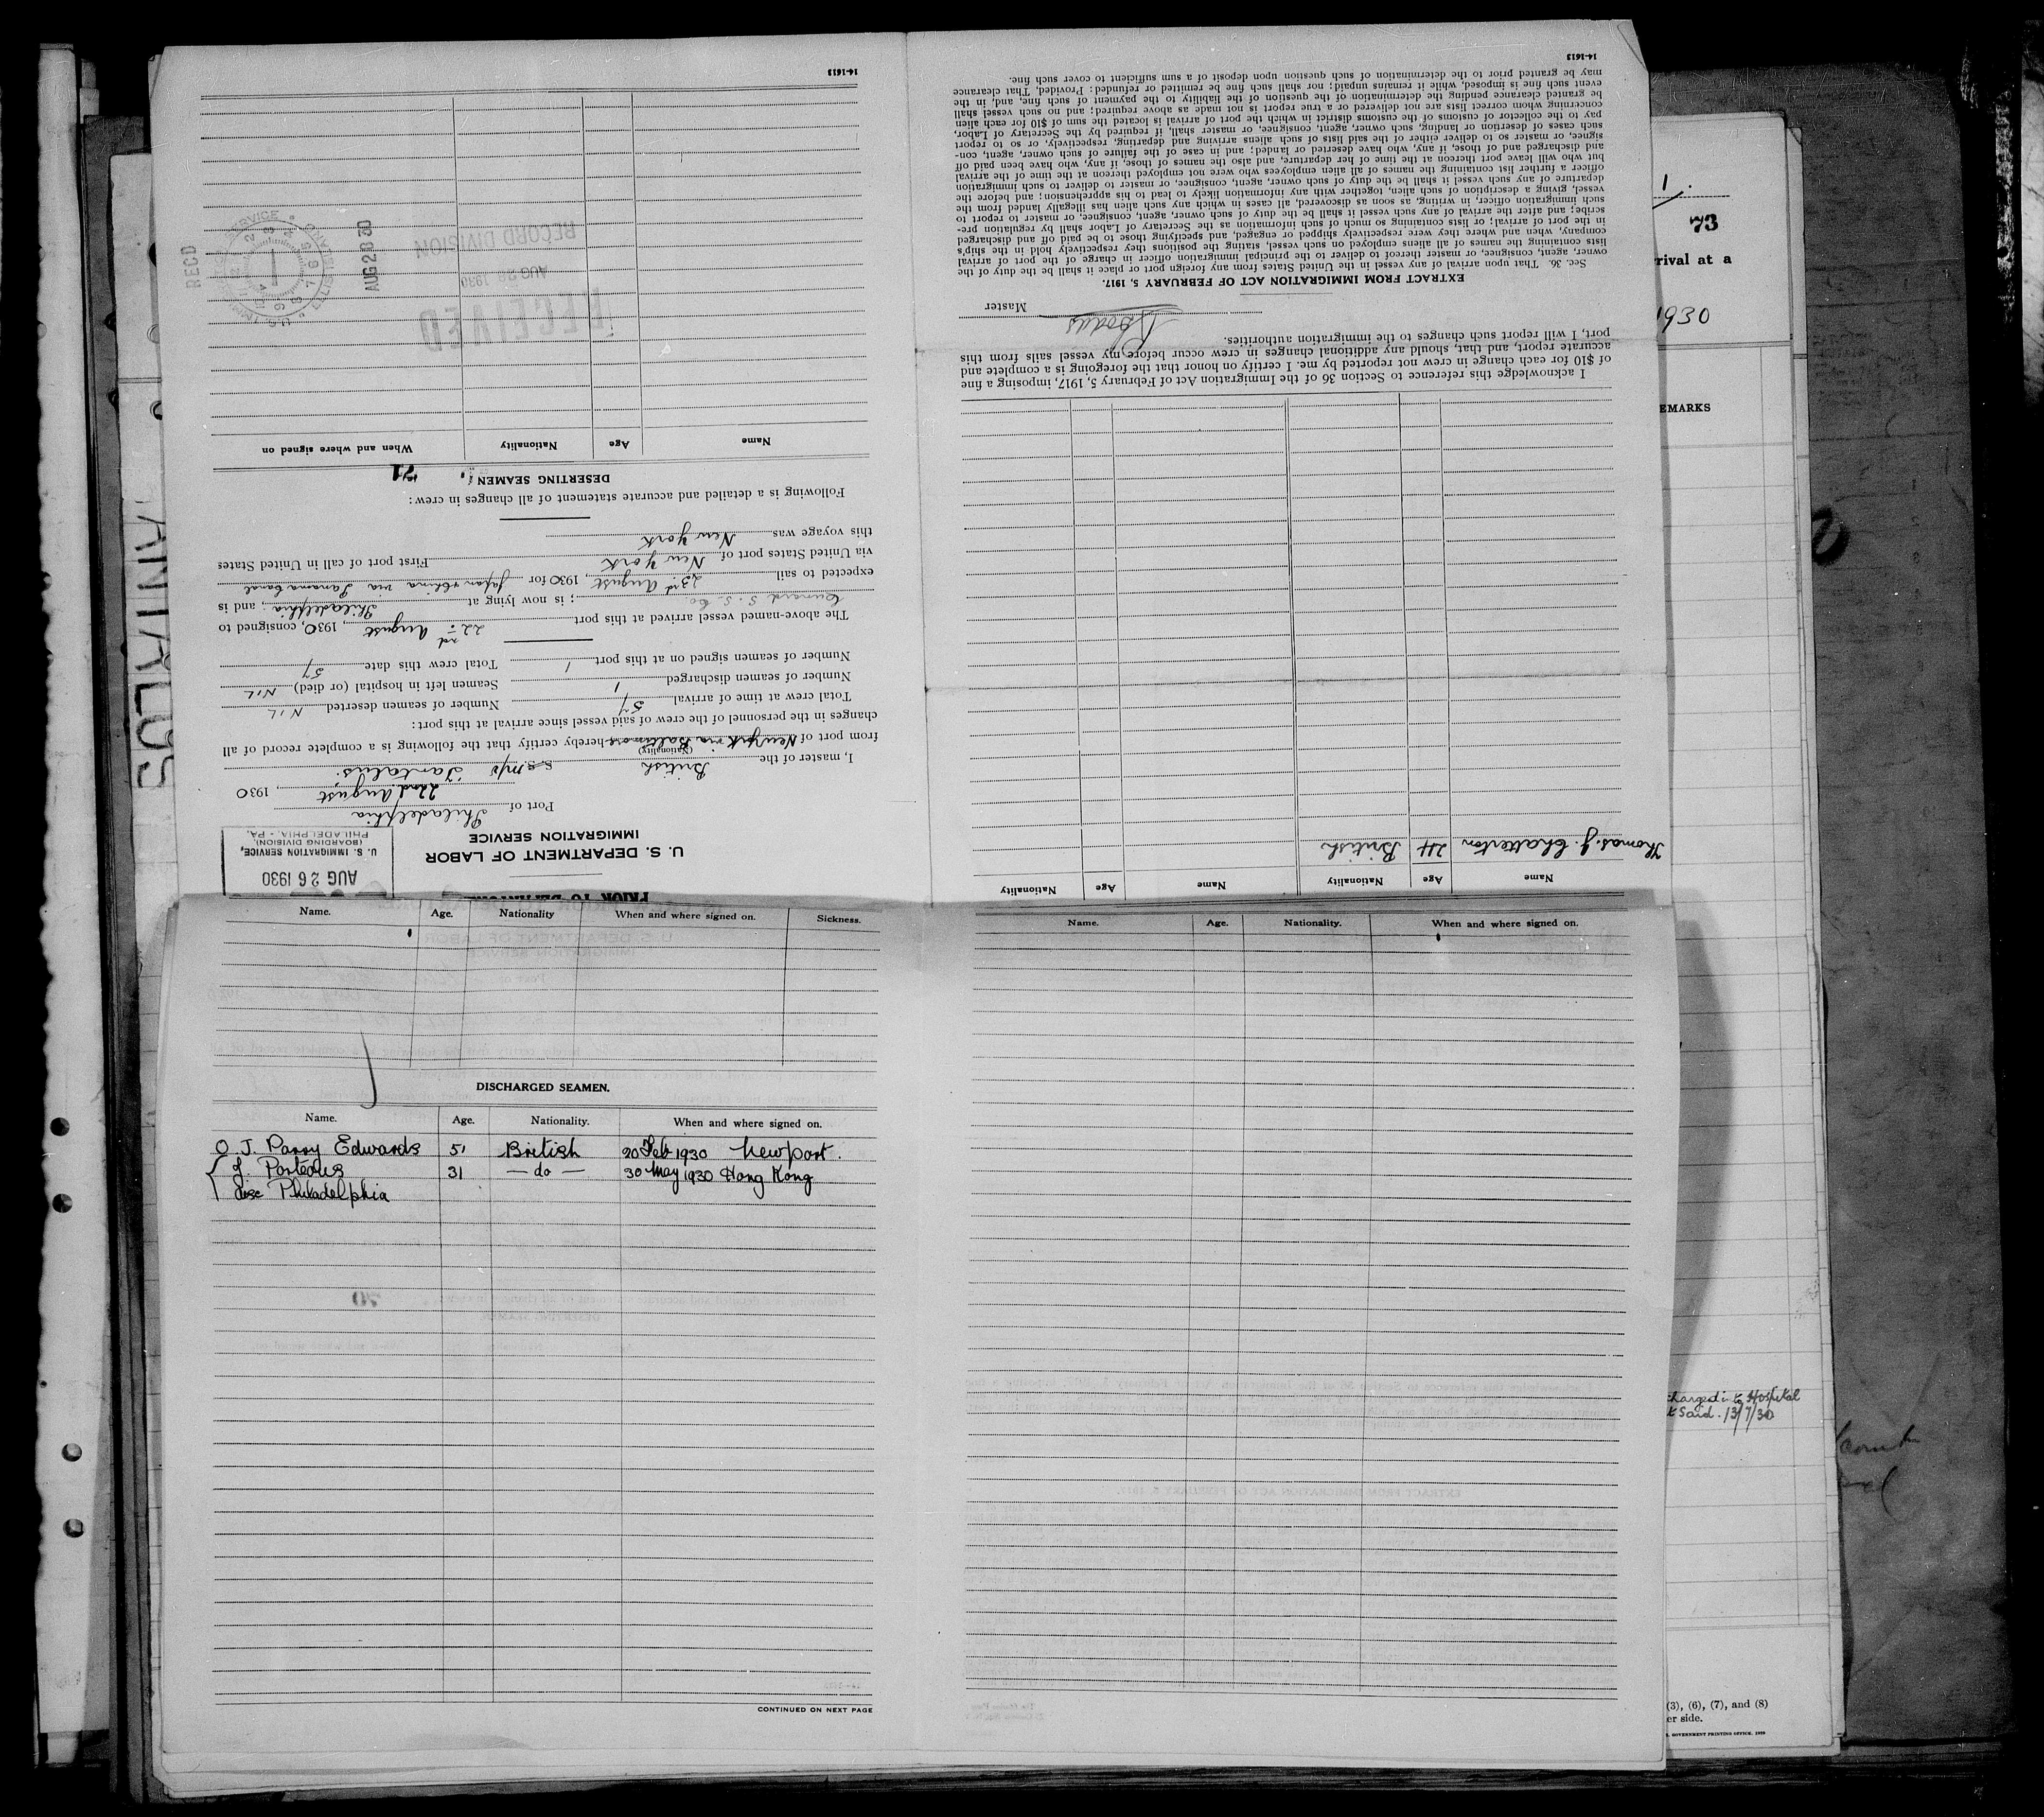 PRIOR TO DEPARTURE
U. S. DEPARTMENT OF LABOR
IMMIGRATION SERVICE
AUG 26 1930
U. S. IMMIGRATION SERVICE,
(BOARDING DIVISION),
PHILADELPHIA, - PA.
Port of Philadelphia
22nd August, 1930
I, master of the British S.S. M/V Tantalus.
(Nationality)
from port of New York via Baltimore hereby certify that the following is a complete record of all
changes in the personnel of the crew of said vessel since arrival at this port:
Total crew at time of arrival 57 Number of seamen deserted NIL
Number of seamen discharged 1 Seamen left in hospital (or died) NIL
Number of seamen signed on at this port 1 Total crew this date 57
The above-named vessel arrived at this port 22nd August, 1930, consigned to
Cunard S. S. Co; is now lying at Philadelphia; and is
expected to sail 23rd August, 1930 for Japan & China via Panama Canal
via United States port of New York First port of call in United States
this voyage was New York
Following is a detailed and accurate statement of all changes in crew:
DESERTING SEAMEN
71
Name Age Nationality When and where signed on
RECEIVED
AUG 28 1930
RECORD DIVISION
REC'D
AUG 28 30
14-1613
Name Age Nationality Name Age Nationality
Thomas. J. Chatterton 24 British
I acknowledge this reference to Section 36 of the Immigration Act of February 5, 1917, imposing a fine
of $10 for each change in crew not reported by me. I certify on honor that the foregoing is a complete and
accurate report, and that, should any additional changes in crew occur before my vessel sails from this
port, I will report such changes to the immigration authorities.
Master
EXTRACT FROM IMMIGRATION ACT OF FEBRUARY 5, 1917.
Sec. 36. That upon arrival of any vessel in the United States from any foreign port or place it shall be the duty of the
owner, agent, consignee, or master thereof to deliver to the principal immigration officer in charge of the port of arrival
lists containing the names of all aliens employed on such vessel, stating the positions they respectively hold in the ship's
company, when and where they were respectively shipped or engaged, and specifying those to be paid off and discharged
in the port of arrival; or lists containing so much of such information as the Secretary of Labor shall by regulation pre-
scribe; and after the arrival of any such vessel it shall be the duty of such owner, agent, consignee, or master to report to
such immigration officer, in writing, as soon as discovered, all cases in which any such alien has illegally landed from the
vessel, giving a description of such alien, together with any information likely to lead to his apprehension; and before the
departure of any such vessel it shall be the duty of such owner, agent, consignee, or master to deliver to such immigration
officer a further list containing the names of all alien employees who were not employed thereon at the time of the arrival
but who will leave port thereon at the time of her departure, and also the names of those, if any, who have been paid off
and discharged and of those, if any, who have deserted or landed; and in case of the failure of such owner, agent, con-
signee, or master so to deliver either of the said lists of such aliens arriving and departing, respectively, or so to report
such cases of desertion or landing, such owner, agent, consignee, or master shall, if required by the Secretary of Labor,
pay to the collector of customs of the customs district in which the port of arrival is located the sum of $10 for each alien
concerning whom correct lists are not delivered or a true report is not made as above required; and no such vessel shall
be granted clearance pending the determination of the question of the liability to the payment of such fine, and, in the
event such fine is imposed, while it remains unpaid; nor shall such fine be remitted or refunded: Provided, That clearance
may be granted prior to the determination of such question upon deposit of a sum sufficient to cover such fine.
14-1613
Name. Age. Nationality When and where signed on. Sickness.
DISCHARGED SEAMEN.
Name. Age. Nationality. When and where signed on.
O. J. Parry Edwards 51 British 20 Feb 1930 Newport.
J. Porteous 31 — do — 30 May 1930 Hong Kong
disc Philadelphia
CONTINUED ON NEXT PAGE
Name. Age. Nationality. When and where signed on.
TANTALUS
1.
73
rival at a
1930
EMARKS
charged into Hospital
t Said. 13/7/30
(3), (6), (7), and (8)
er side.
GOVERNMENT PRINTING OFFICE. 1929